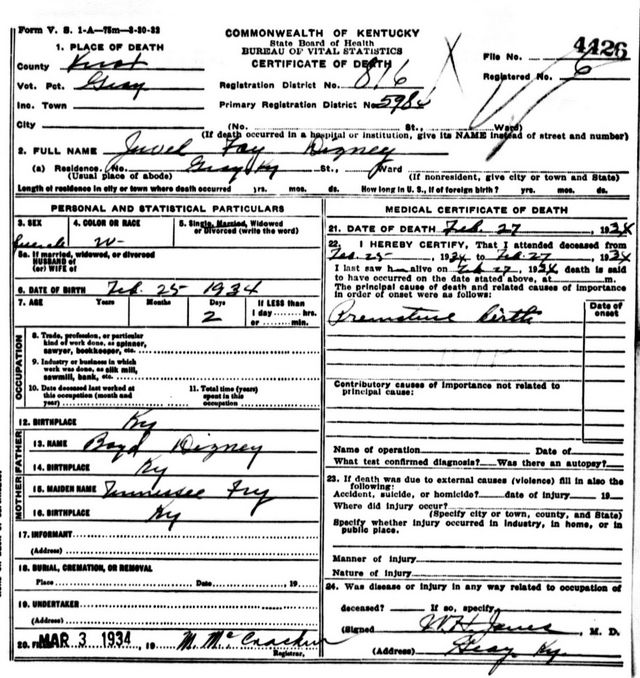 Form V. S. 1-A—75m—8-30-32
COMMONWEALTH OF KENTUCKY
State Board of Health
BUREAU OF VITAL STATISTICS
CERTIFICATE OF DEATH
File No. 4426
Registered No. 6
1. PLACE OF DEATH
County Knox
Vot. Pct. Gray
Inc. Town
City
Registration District No. 816
Primary Registration District No. 5984
(No. St., Ward)
(If death occurred in a hospital or institution, give its NAME instead of street and number)
2. FULL NAME Juvel Fay Dizney
(a) Residence. No. Gray Ky St., Ward
(Usual place of abode) (If nonresident, give city or town and State)
Length of residence in city or town where death occurred yrs. mos. ds. How long in U. S., if of foreign birth? yrs. mos. ds.
PERSONAL AND STATISTICAL PARTICULARS
3. SEX Female
4. COLOR OR RACE W
5. Single, Married, Widowed or Divorced (write the word)
5a. If married, widowed, or divorced
HUSBAND of
(or) WIFE of
6. DATE OF BIRTH Feb. 25 1934
7. AGE Years Months Days 2
If LESS than
1 day hrs.
or min.
OCCUPATION
8. Trade, profession, or particular
kind of work done, as spinner,
sawyer, bookkeeper, etc.
9. Industry or business in which
work was done, as silk mill,
sawmill, bank, etc.
10. Date deceased last worked at
this occupation (month and
year)
11. Total time (years)
spent in this
occupation
12. BIRTHPLACE Ky
FATHER
13. NAME Boyd Dizney
14. BIRTHPLACE Ky
MOTHER
15. MAIDEN NAME Tennessee Fry
16. BIRTHPLACE Ky
17. INFORMANT
(Address)
18. BURIAL, CREMATION, OR REMOVAL
Place Date , 19
19. UNDERTAKER
(Address)
20. FILED MAR 3 1934 , 19 M. McCracken
Registrar.
MEDICAL CERTIFICATE OF DEATH
21. DATE OF DEATH Feb. 27 , 1934
22. I HEREBY CERTIFY, That I attended deceased from
Feb. 25 , 1934 to Feb. 27 , 1934
I last saw h alive on Feb 27 , 1934 death is said
to have occurred on the date stated above, at m.
The principal cause of death and related causes of importance
in order of onset were as follows:
Date of
onset
Premature Birth
Contributory causes of importance not related to
principal cause:
Name of operation Date of
What test confirmed diagnosis? Was there an autopsy?
23. If death was due to external causes (violence) fill in also the
following:
Accident, suicide, or homicide? date of injury 19
Where did injury occur?
(Specify city or town, county, and State)
Specify whether injury occurred in industry, in home, or in
public place.
Manner of injury
Nature of injury
24. Was disease or injury in any way related to occupation of
deceased? If so, specify
(Signed W H Jones , M. D.
(Address) Gray Ky.